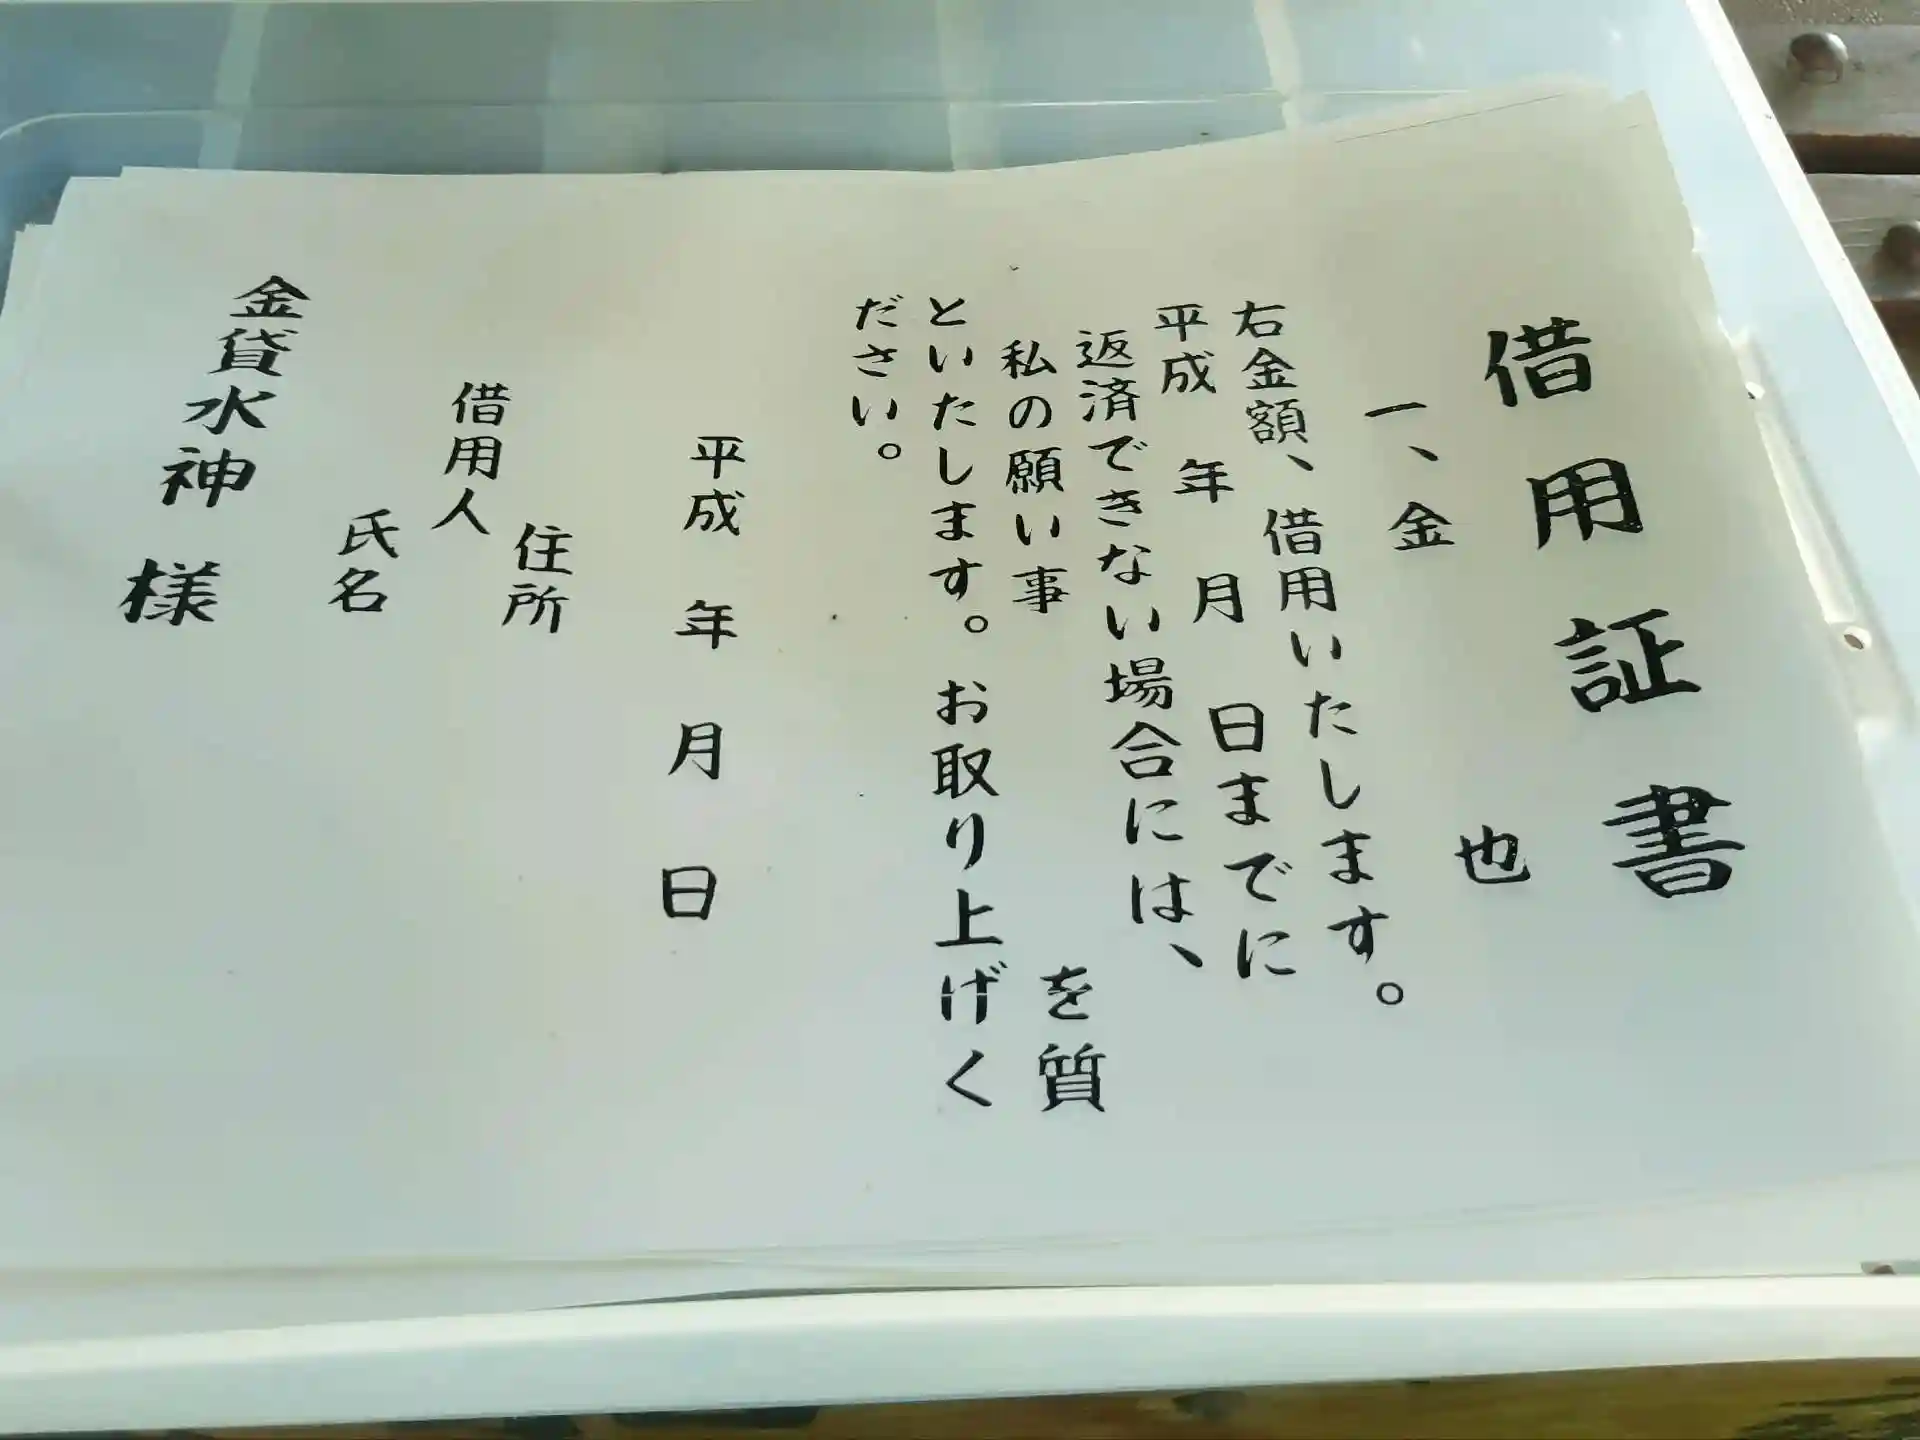 借用証書
一、金 也
右金額、借用いたします。
平成 年 月 日までに
返済できない場合には、
私の願い事 を質
といたします。お取り上げく
ださい。
平成 年 月 日
住所
借用人
氏名
金貸水神 様